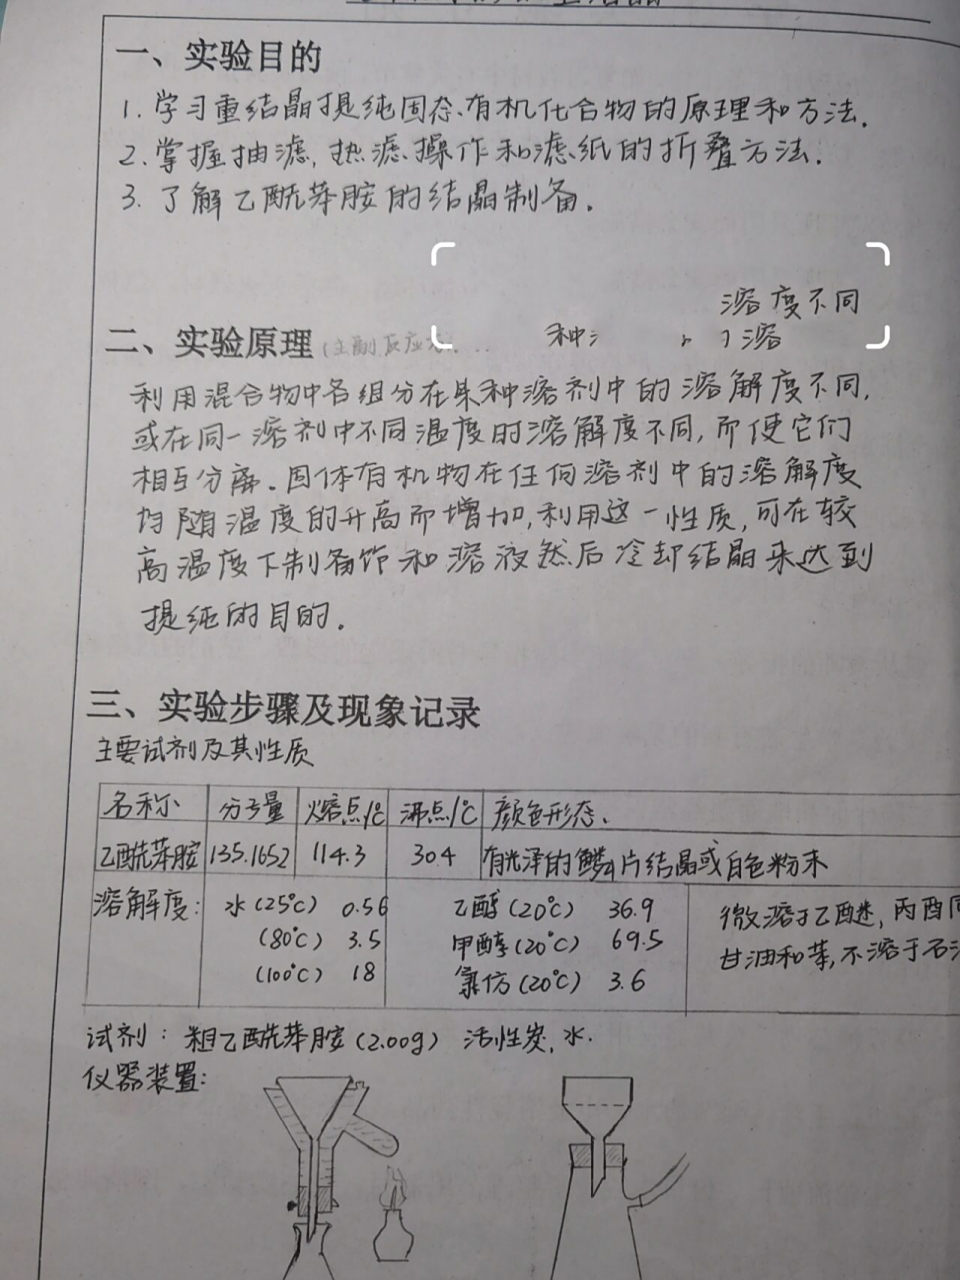 一、实验目的
1. 学习重结晶提纯固态有机化合物的原理和方法.
2. 掌握抽滤,热滤操作和滤纸的折叠方法.
3. 了解乙酰苯胺的结晶制备.
溶 度不同
种 溶
二、实验原理(主副反应方
利用混合物中各组分在某种溶剂中的溶解度不同,
或在同一溶剂中不同温度时溶解度不同,而使它们
相互分离.固体有机物在任何溶剂中的溶解度
均随温度的升高而增加,利用这一性质,可在较
高温度下制备饱和溶液然后冷却结晶来达到
提纯的目的.
三、实验步骤及现象记录
主要试剂及其性质
名称 分子量 熔点/℃ 沸点/℃ 颜色形态.
乙酰苯胺 135.1652 114.3 304 有光泽的鳞片结晶或白色粉末
溶解度: 水(25℃) 0.56 乙醇(20℃) 36.9 微溶于乙醚,丙酮
(80℃) 3.5 甲醇(20℃) 69.5 甘油和苯,不溶于石
(100℃) 18 氯仿(20℃) 3.6
试剂: 粗乙酰苯胺(2.00g) 活性炭,水.
仪器装置: